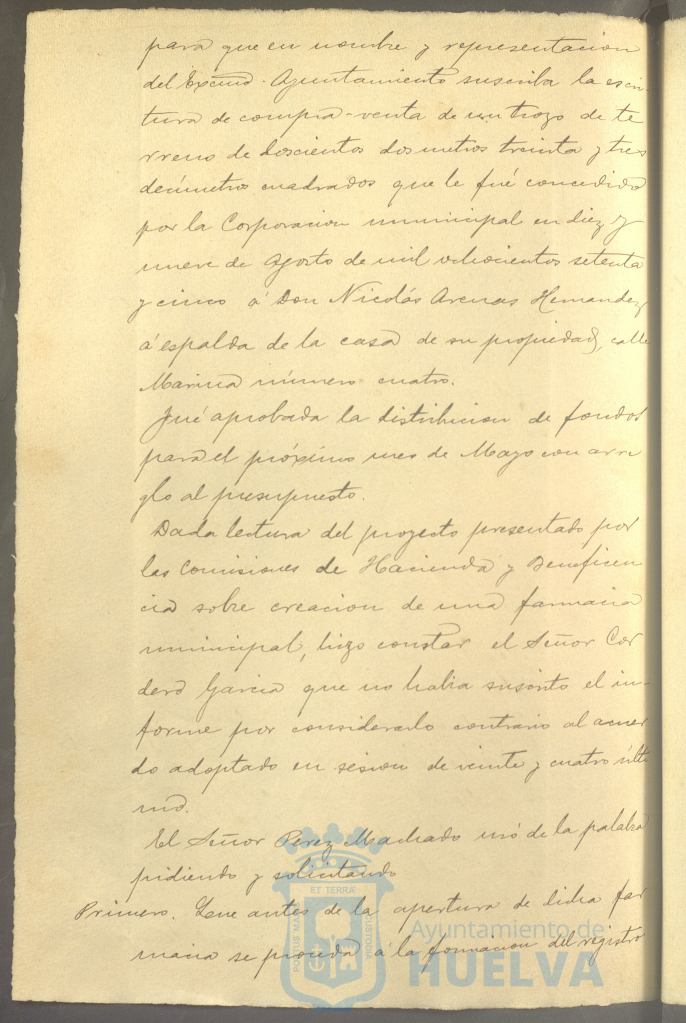 para que en nombre y representacion
del Excmo. Ayuntamiento suscriba la escri-
tura de compra-venta de un trozo de te
rreno de doscientos dos metros treinta y tres
decímetros cuadrados que le fué concedido
por la Corporacion municipal en diez y
nueve de Agosto de mil ochocientos setenta
y cinco á Don Nicolás Arenas Hernandez,
á espalda de la casa de su propiedad, calle
Marina número cuatro.
Fué aprobada la distribucion de fondos
para el próximo mes de Mayo con arre
glo al presupuesto.
Dada lectura del proyecto presentado por
las Comisiones de Hacienda y Beneficen
cia sobre creacion de una farmacia
municipal, hizo constar el Señor Cor
dero Garcia que no habia suscrito el in-
forme por considerarlo contrario al acuer
do adoptado en sesion de veinte y cuatro últi
mo.
El Señor Perez Machado usó de la palabra
pidiendo y solicitando
Primero. Que antes de la apertura de dicha far
macia se proceda á la formacion del registro
PORTUS MARIS
ET TERRÆ
CUSTODIA
Ayuntamiento de
HUELVA